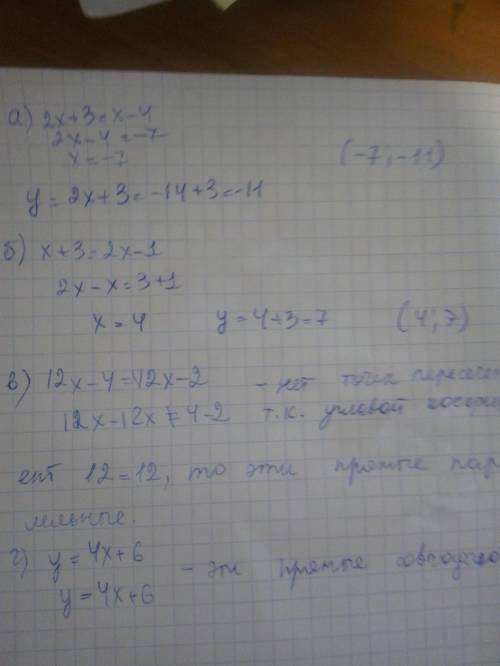 а) 2x+3=x-4
2x-4=-7
x=-7
(-7; -11)
y=2x+3=-14+3=-11
б) x+3=2x-1
2x-x=3+1
x=4 y=4+3=7 (4; 7)
в) 12x-4=12x-2 - нет точек пересечен
12x-12x≠4-2 т.к. угловой коэффици
ент 12=12, то эти прямые пар
лельные.
г) y=4x+6
- эти прямые совпадаю
y=4x+6